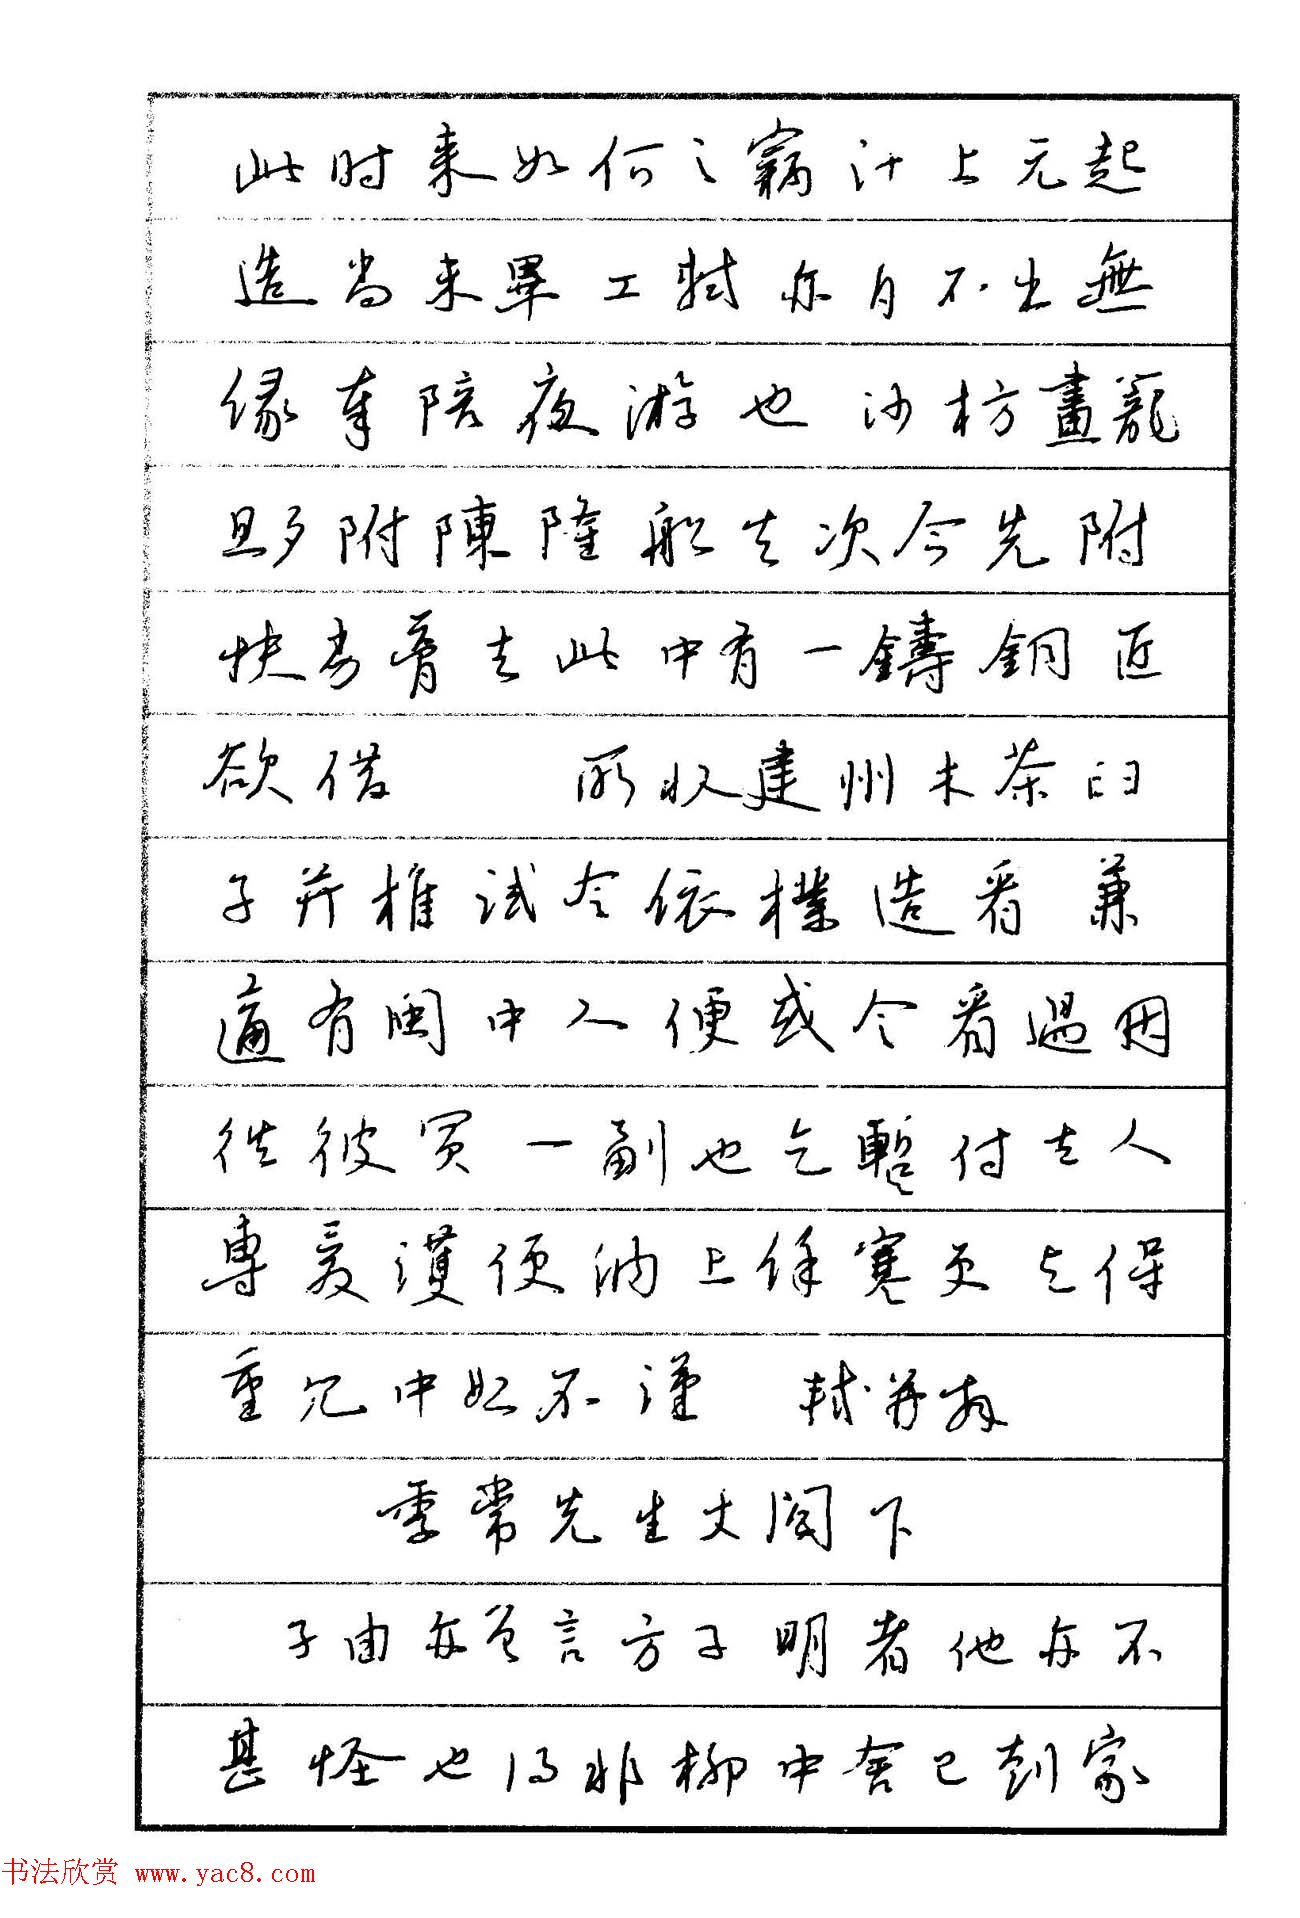 此时来如何〻竊计上元起
造尚未畢工軾亦自不出無
缘奉陪夜游也沙枋畫籠
旦夕附陳隆船去次今先附
扶劣膏去此中有一鑄銅匠
欲借 所收建州木茶臼
子并椎试令依樣造看兼
適有闽中人便或令看過因
往彼買一副也乞暫付去人
專爱護便納上餘寒更乞保
重冗中恕不謹 軾再拜
季常先生丈阁下
子由亦曾言方子明者他亦不
甚怪也得非柳中舍已到家
书法欣赏 www.yac8.com